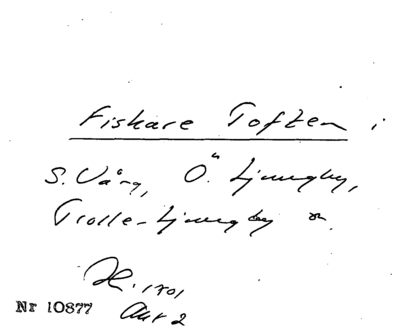 Fiskare Toften i
S. Vång, Ö. Ljungby,
Trolle-Ljungby
1701
Nr 10877 Akt 2